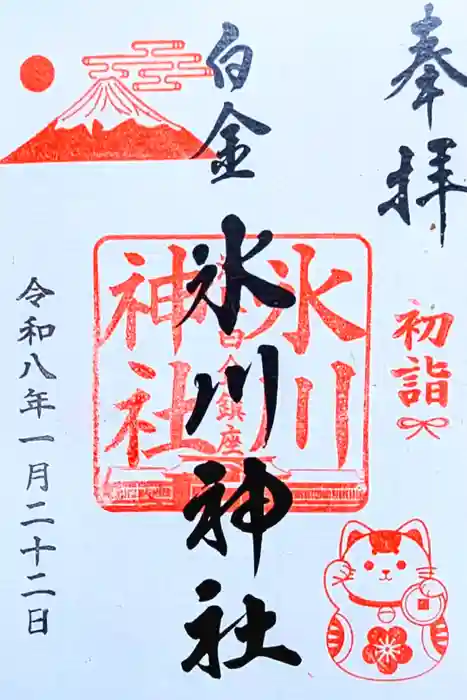 奉拝
初詣
白金
氷川神社
氷川
神社
白金鎮座
令和八年一月二十二日